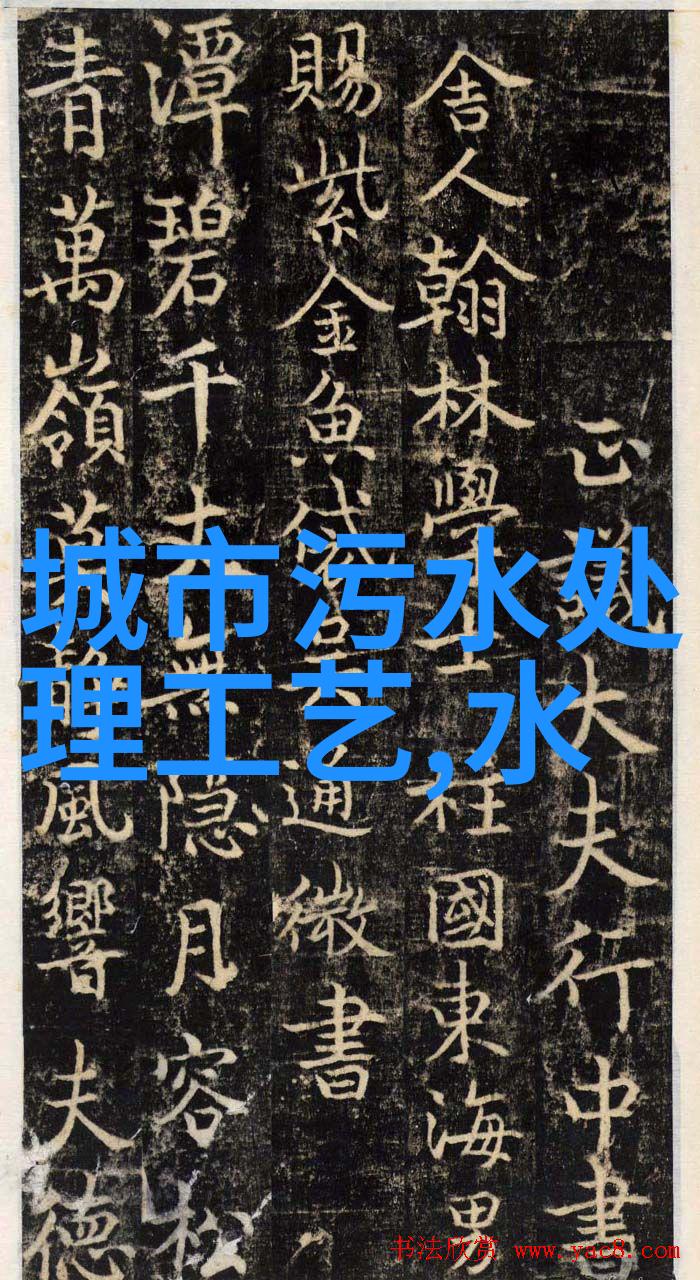 正議大夫行中書
舍人翰林學士柱國東海男
賜紫金魚袋通微書
潭碧千丈無隱月容松
青萬嶺風響夫德
城市污水处
理工艺,水
书法欣赏 www.yac8.com